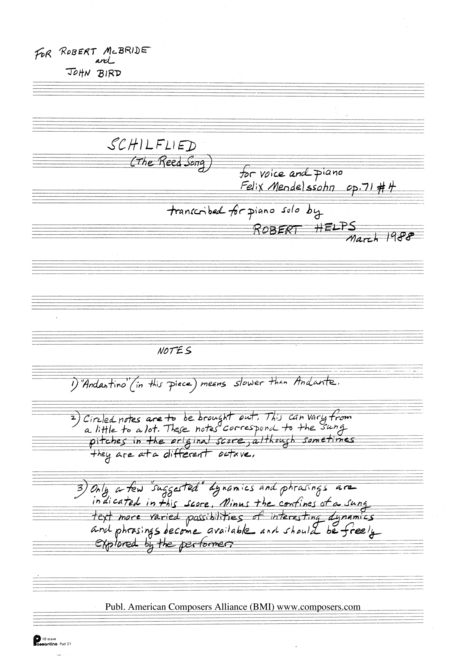 FOR ROBERT McBRIDE
and
JOHN BIRD
SCHILFLIED
(The Reed Song)
for voice and piano
Felix Mendelssohn op.71 #4
transcribed for piano solo by
ROBERT HELPS
March 1988
NOTES
1) "Andantino" (in this piece) means slower than Andante.
2) Circled notes are to be brought out. This can vary from
a little to a lot. These notes correspond to the sung
pitches in the original score, although sometimes
they are at a different octave.
3) Only a few "suggested" dynamics and phrasings are
indicated in this score. Minus the confines of a sung
text more varied possibilities of interesting dynamics
and phrasings become available and should be freely
explored by the performer.
Publ. American Composers Alliance (BMI) www.composers.com